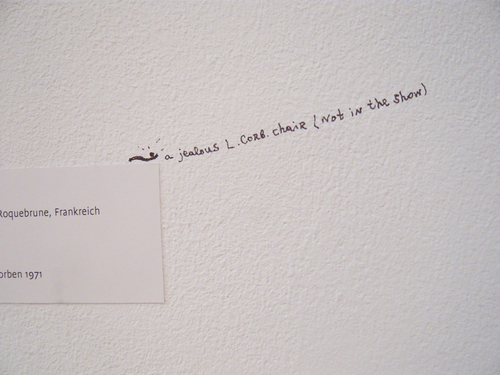 a jealous L. CORB. chaiR (Not iN the show)
Roquebrune, Frankreich
orben 1971